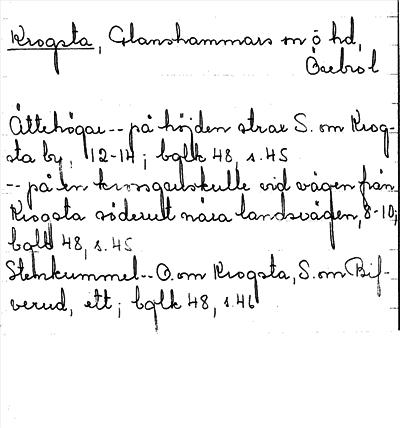 Krogsta, Glanshammars sn o hd,
Örebro l
Ättehögar -- på höjden strax S. om Krog-
sta by, 12-14; bglk 48, s. 45
-- på en krossgruskulle vid vägen från
Krogsta söderut nära landsvägen, 8-10;
bglk 48, s. 45
Stenkummel -- O. om Krogsta, S. om Bif-
verud, ett; bglk 48, s. 46